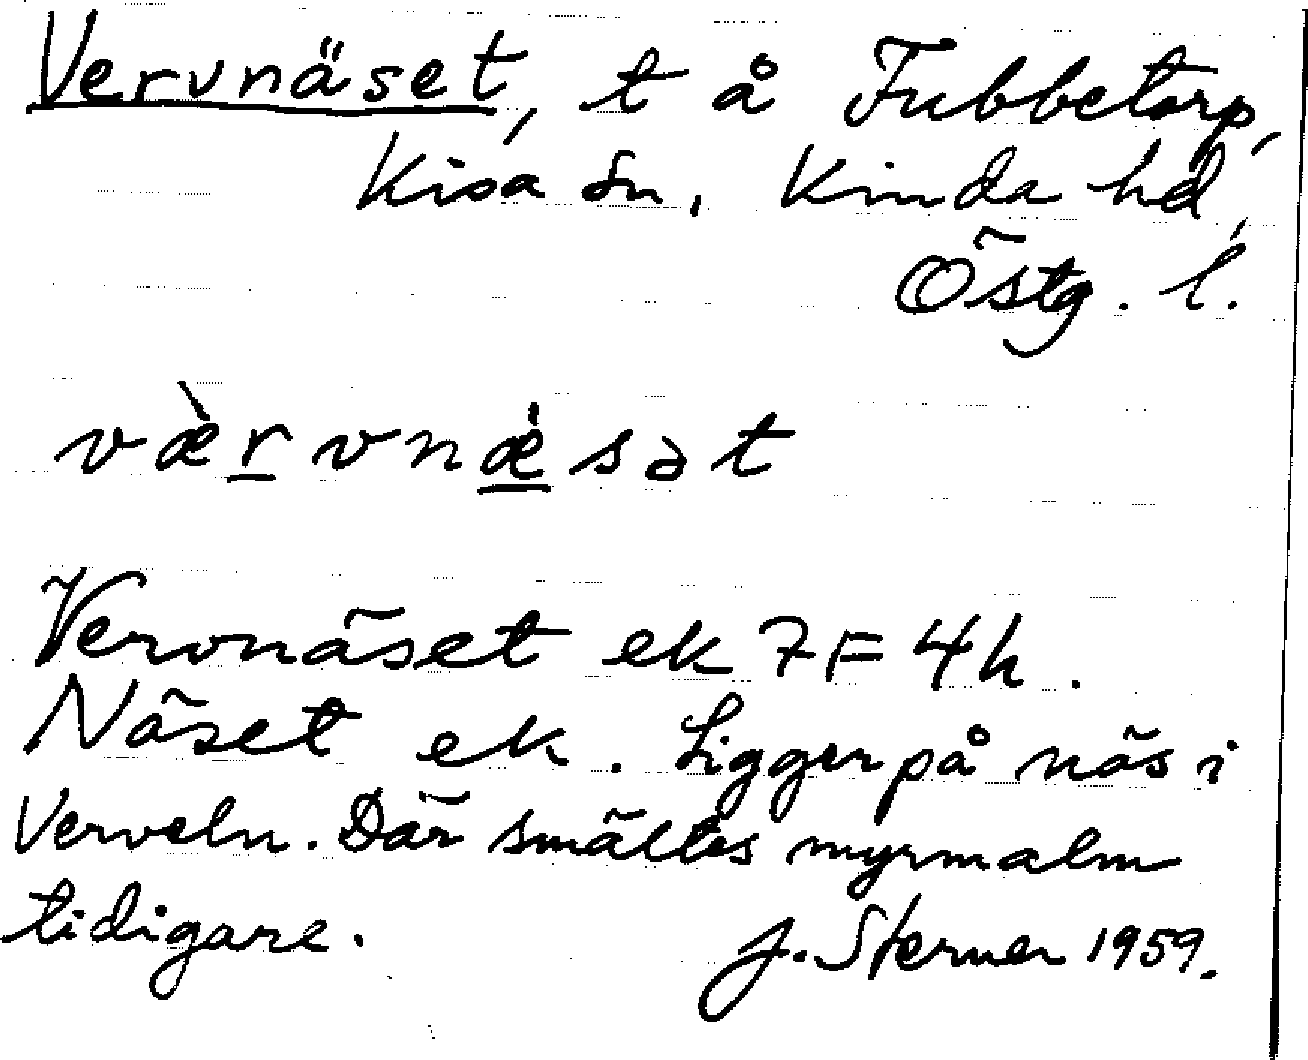 Vervnäset, t å Fubbetorp,
Kisa sn, Kinda hd,
Östg. l.
væ̀rvnæ̍sət
Vervnäset ek 7F 4h.
Näset ek. Ligger på näs i
Verveln. Där smältes myrmalm
tidigare. J. Sterner 1959.